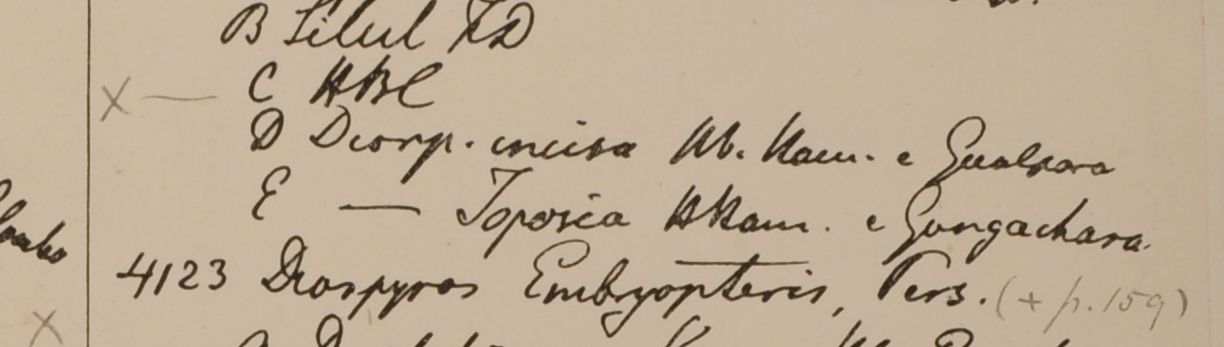 B Silul FD
X — C HBC
D Diosp. incisa Hb. Ham. e Gualpara
E — Toposia HHam. e Gongachara.
4123 Diospyros Embryopteris, Pers. (+ p. 159)
X